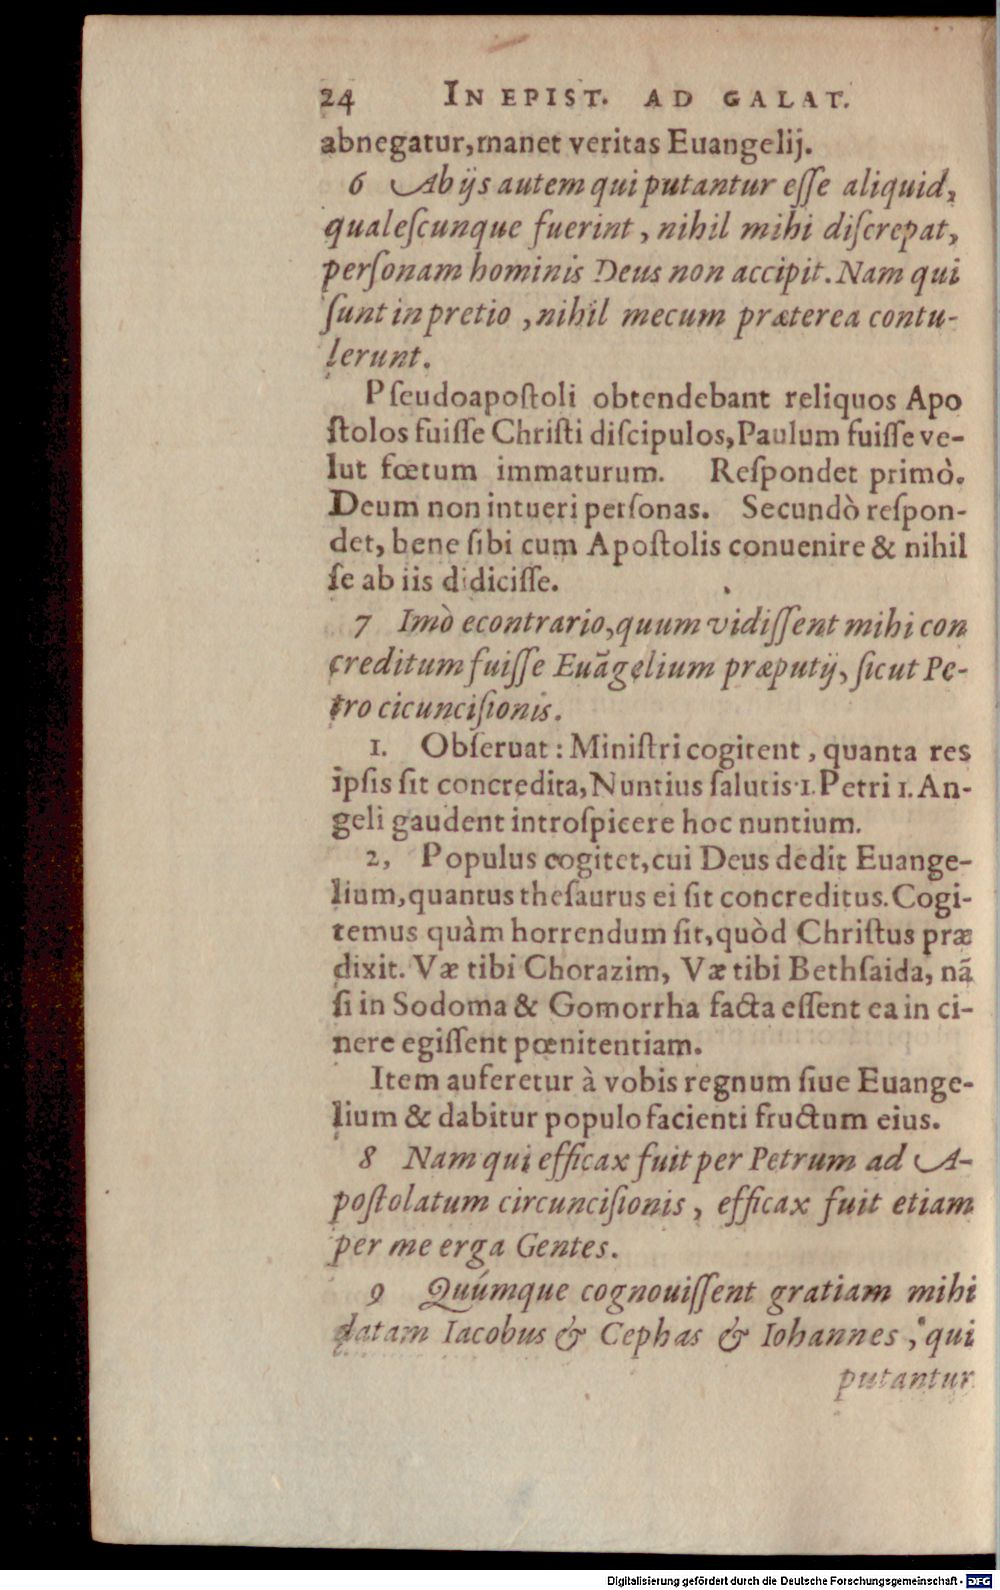 24 IN EPIST. AD GALAT.
abnegatur, manet veritas Euangelij.
6 Ab ijs autem qui putantur eſſe aliquid,
qualeſcunque fuerint, nihil mihi diſcrepat,
perſonam hominis Deus non accipit. Nam qui
ſunt in pretio, nihil mecum præterea contu-
lerunt.
Pſeudoapoſtoli obtendebant reliquos Apo
ſtolos fuiſſe Chriſti diſcipulos, Paulum fuiſſe ve-
lut fœtum immaturum. Reſpondet primò.
Deum non intueri perſonas. Secundò reſpon-
det, bene ſibi cum Apoſtolis conuenire & nihil
ſe ab iis didiciſſe.
7 Imò econtrario, quum vidiſſent mihi con
creditum fuiſſe Euãgelium præputij, ſicut Pe-
tro cicunciſionis.
1. Obſeruat: Miniſtri cogitent, quanta res
ipſis ſit concredita, Nuntius ſalutis 1. Petri 1. An-
geli gaudent introſpicere hoc nuntium.
2, Populus cogitet, cui Deus dedit Euange-
lium, quantus theſaurus ei ſit concreditus. Cogi-
temus quàm horrendum ſit, quòd Chriſtus præ
dixit. Væ tibi Chorazim, Væ tibi Bethſaida, nã
ſi in Sodoma & Gomorrha facta eſſent ea in ci-
nere egiſſent pœnitentiam.
Item auferetur à vobis regnum ſiue Euange-
lium & dabitur populo facienti fructum eius.
8 Nam qui efficax fuit per Petrum ad A-
poſtolatum circunciſionis, efficax fuit etiam
per me erga Gentes.
9 Quúmque cognouiſſent gratiam mihi
datam Iacobus & Cephas & Iohannes, qui
putantur
Digitalisierung gefördert durch die Deutsche Forschungsgemeinschaft - DFG